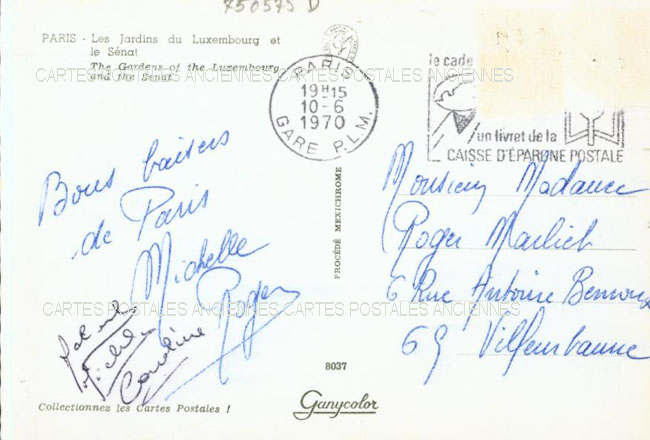 750575 D
PARIS - Les Jardins du Luxembourg et
le Sénat
The Gardens of the Luxembourg
and the Senat
CARTES POSTALES ANCIENNES CARTES POSTALES ANCIENNES
PARIS
19H15
10-6
1970
GARE P.L.M.
le cade
un livret de la
CAISSE D'ÉPARGNE POSTALE
Bons baisers
de Paris
Michelle
Roger
Michel
Caroline
PROCÉDÉ MEXICHROME
Monsieur Madame
Roger
6 Rue Antoine
69 Villeurbanne
CARTES POSTALES ANCIENNES CARTES POSTALES ANCIENNES
8037
Collectionnez les Cartes Postales !
Ganycolor